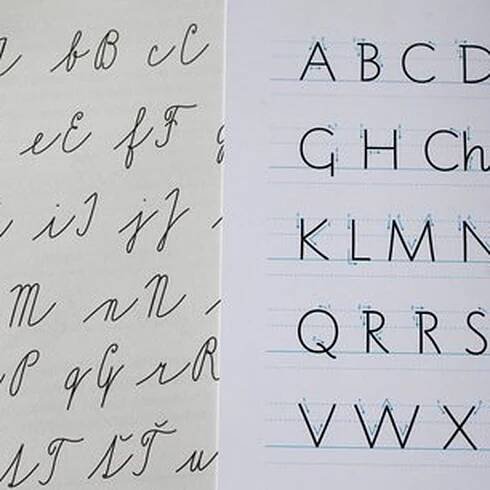 b B c C
e E f F
i I j J
M n N
P q Q r R
T ť Ť u
A B C D
G H Ch
K L M N
Q R Ř S
V W X